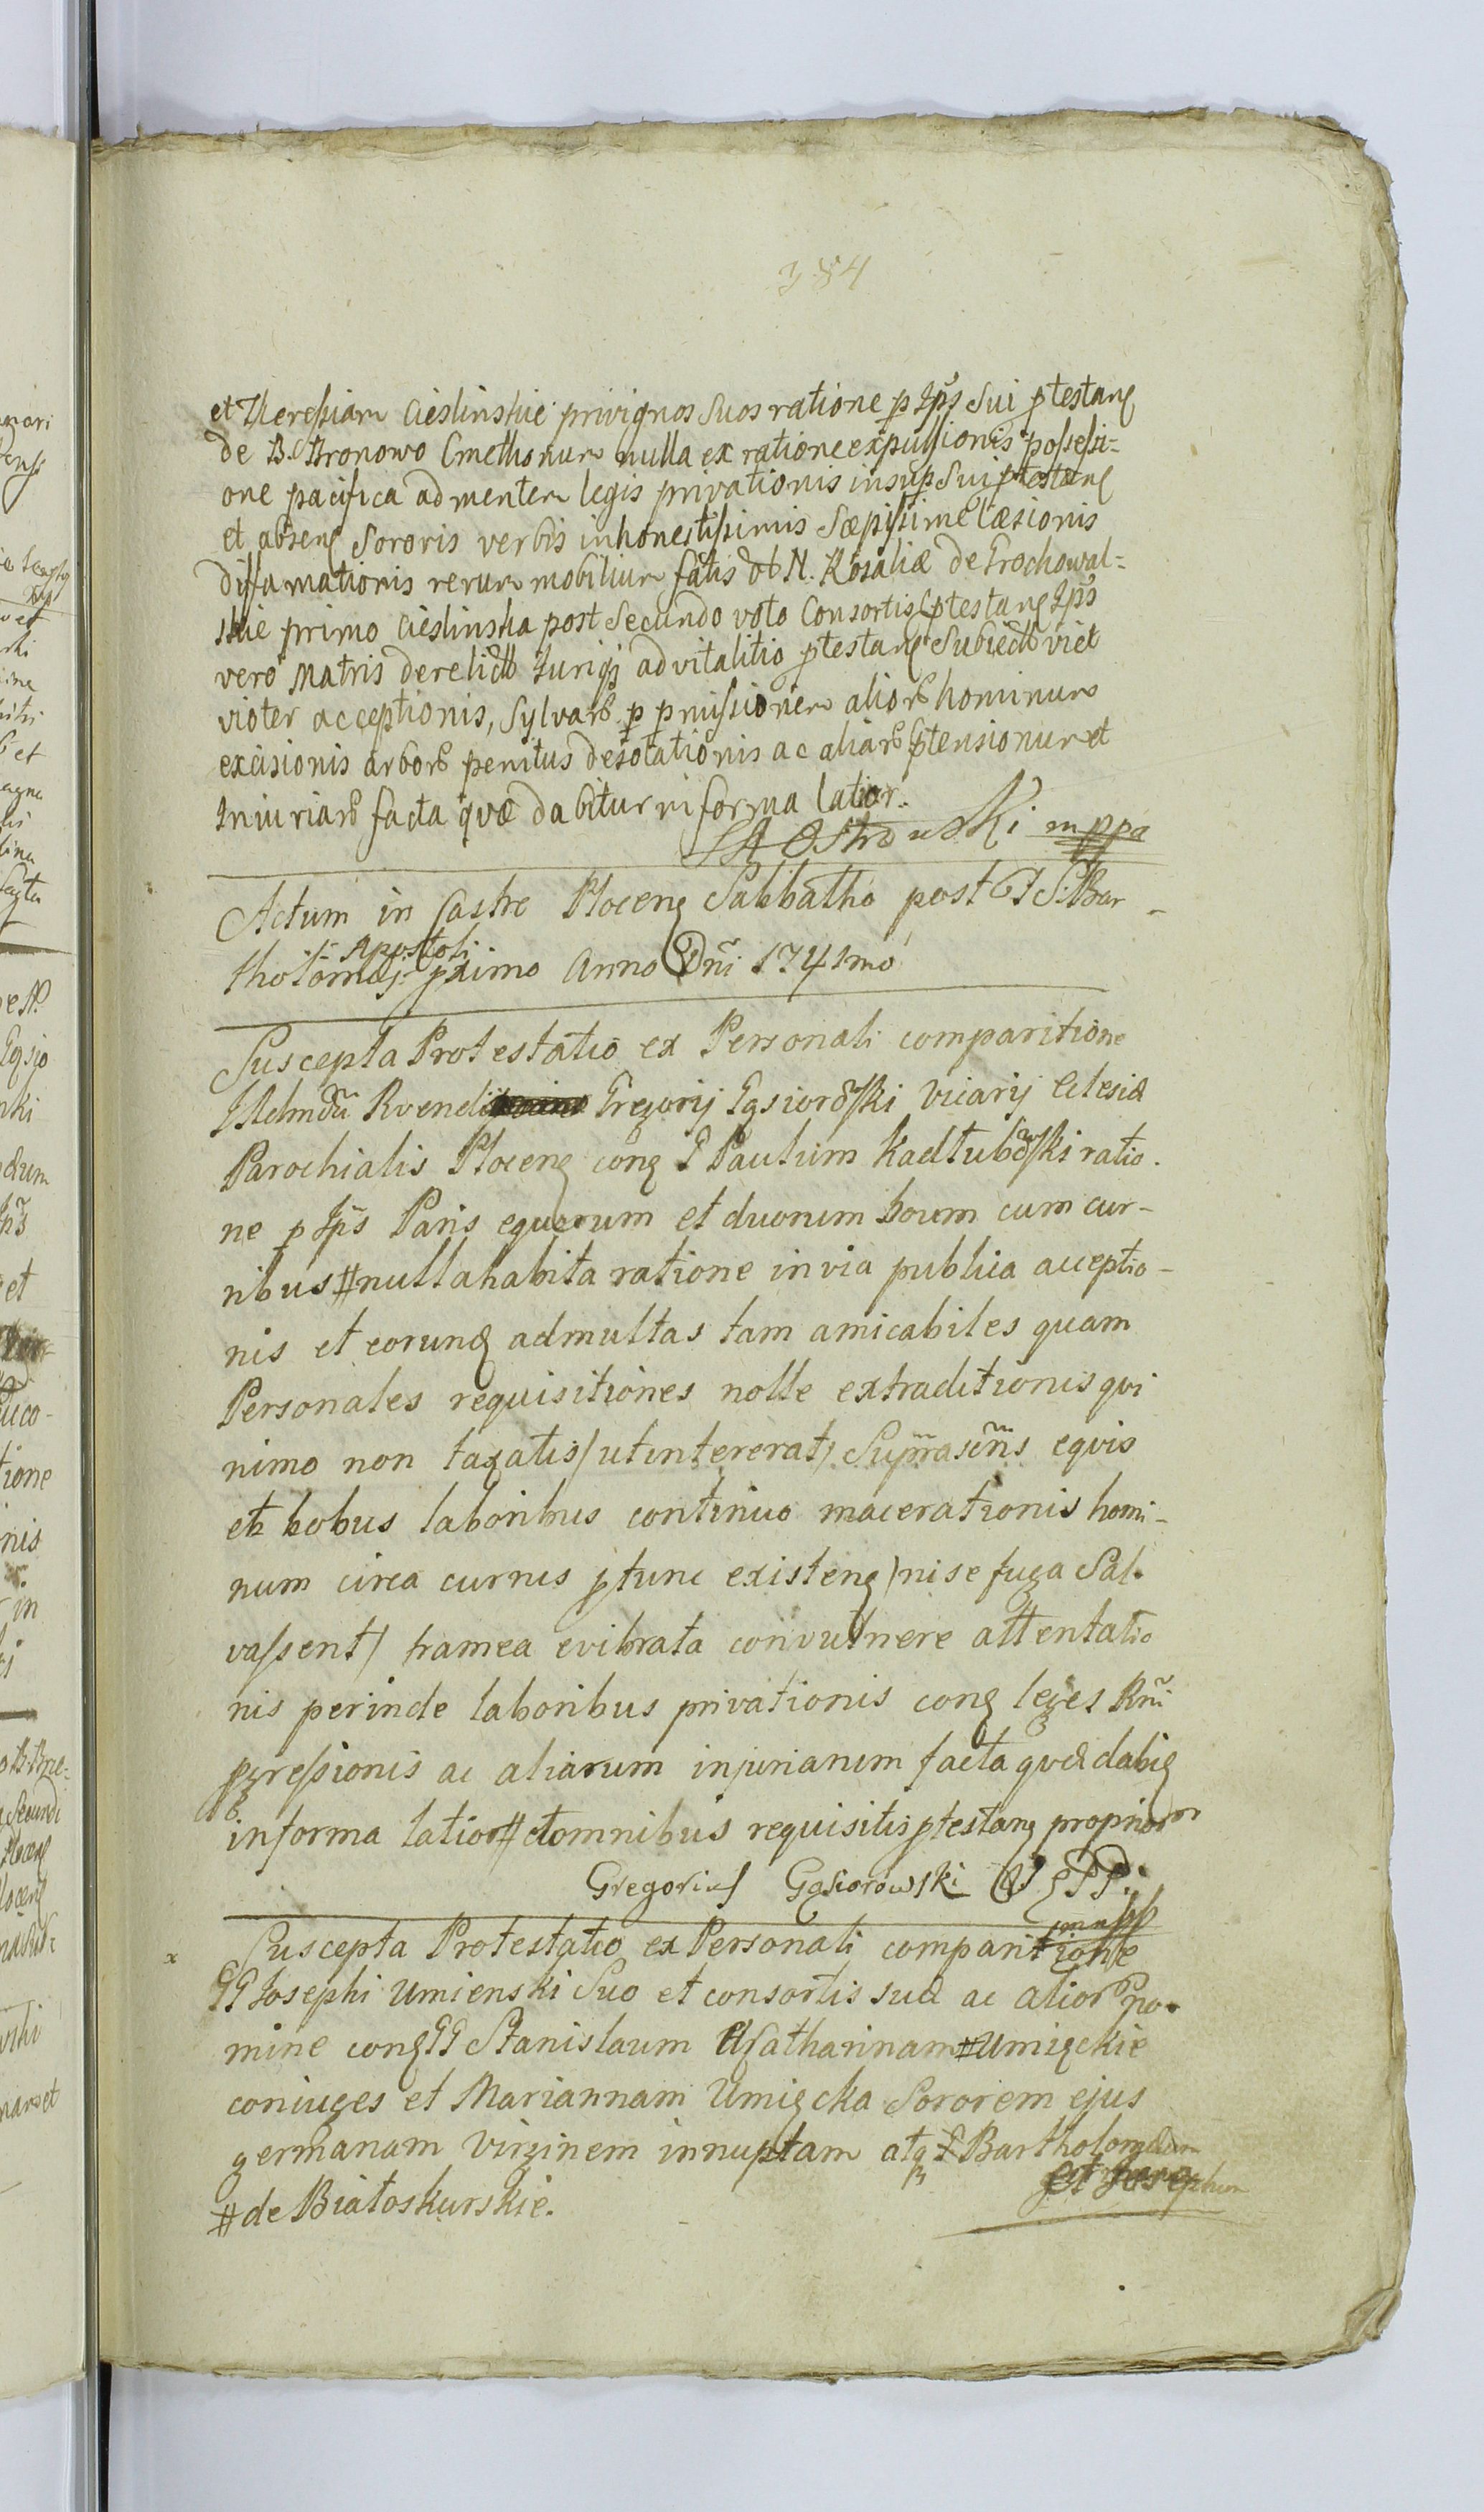 384
et Theressiam Cieslinskie privignos Suos ratione p Ips Sui ptestang
de B. Bronowo Cmethonum nulla ex ratione expulsionis possessi-
one pacifica ad mentem legis privationis insup Sui ptestang
et abseng Sororis verbis inhonestissimis Sæpissime læsionis
diffamationis rerum mobilium fatis ob N. Rosaliæ de Grochowal-
skie primo Cieslinska post Secundo voto Consortis ptestang Ips
vero Matris derelict Iurig advitalitio ptestang Subiect viet
vioter acceptionis, Sylvar p pmissionem alior hominum
excisionis arbor penitus desolationis ac aliar ptensionum et
Iniuriar facta quæ dabitur in forma latior.
Ostrowski mppa
Actum in Castro Ploceng Sabbatho post F S: Bar-
tholomæj Apostoli pximo Anno Dñi 1741mo
Suscepta Protestatio ex Personali comparitione
Rvendi Gregorij Gąsiorowski Vicarij Eclesiæ
Parochialis Ploceng cong G Paulum Kadłubowski ratio-
ne p Ips Paris equorum et duorum boum cum cur-
ribus # nulla habita ratione in via publica acceptio-
nis et eorund ad multas tam amicabiles quam
Personales requisitiones nolle extraditionis qui
nimo non taxatis /ut intererat/ Supra equis
et bobus laboribus continuo macerationis homi-
num circa currus ptunc existeng /ni se fuga Sal-
vassent/ framea evibrata convulnere attentatio
nis perinde laboribus privationis cong leges Rni
pgressionis ac aliarum injuriarum facta quæ dabig
in forma latiori # et omnibus requisitis ptestang propriorm
Gregorius Gąsiorowski V E P P:
mpp
x Suscepta Protestatio ex Personali comparitione
GG Josephi Umienski Suo et consortis suæ ac alior no-
mine cong GG Stanislaum et Catharinam # Umięckie
coniuges et Mariannam Umięcka Sororem ejus
germanam Virginem innuptam atq G Bartholomæum
et Josephum
# de Białoskurskie.